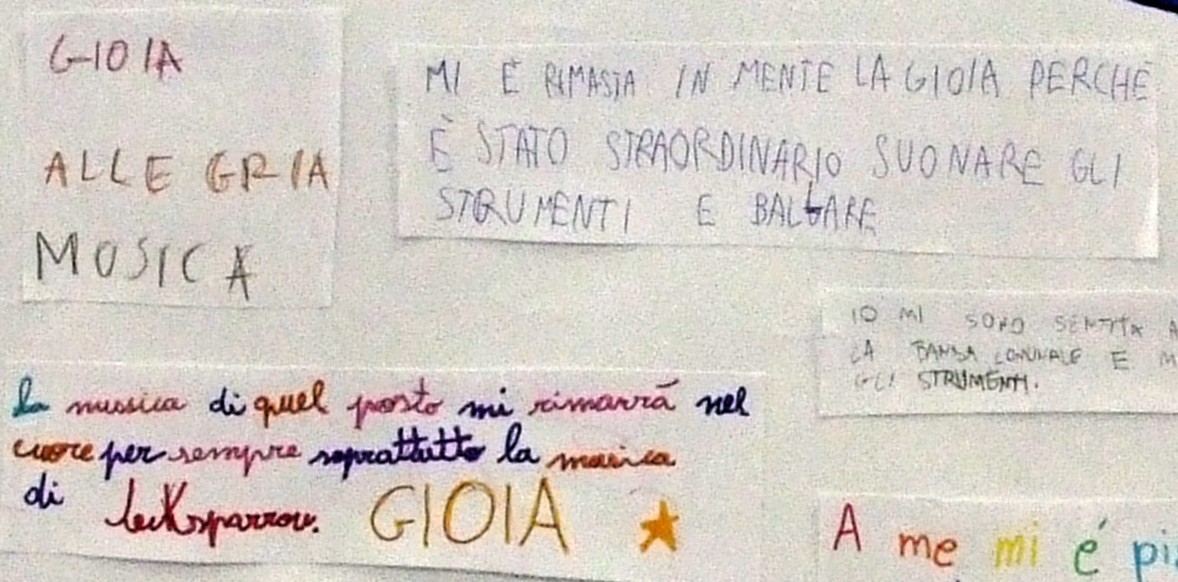 GIOIA
ALLEGRIA
MUSICA
MI È RIMASTA IN MENTE LA GIOIA PERCHÈ
È STATO STRAORDINARIO SUONARE GLI
STRUMENTI E BALLARE
IO MI SONO SENTITA A
LA BANDA COMUNALE E M
GLI STRUMENTI.
la musica di quel posto mi rimarrà nel
cuore per sempre soprattutto la musica
di Jecksparrow. GIOIA
A me mi é pi